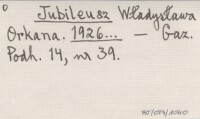 Jubileusz Władysława
Orkana. 1926... — Gaz.
Podh. 14, nr 39.